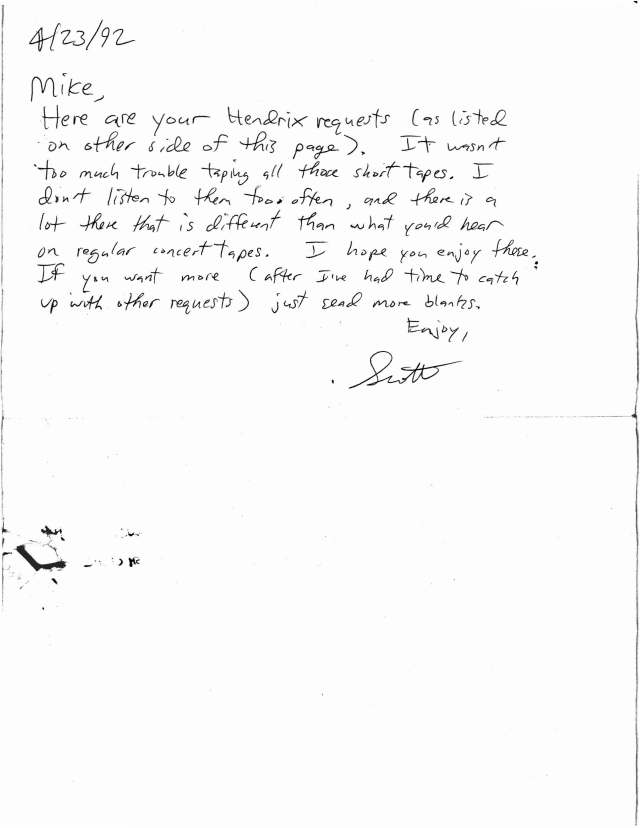 4/23/92
Mike,
Here are your Hendrix requests (as listed
on other side of this page). It wasn't
too much trouble taping all those short tapes. I
don't listen to them too often, and there is a
lot there that is different than what you'd hear
on regular concert tapes. I hope you enjoy these.
If you want more (after I've had time to catch
up with other requests) just send more blanks.
Enjoy,
Scott